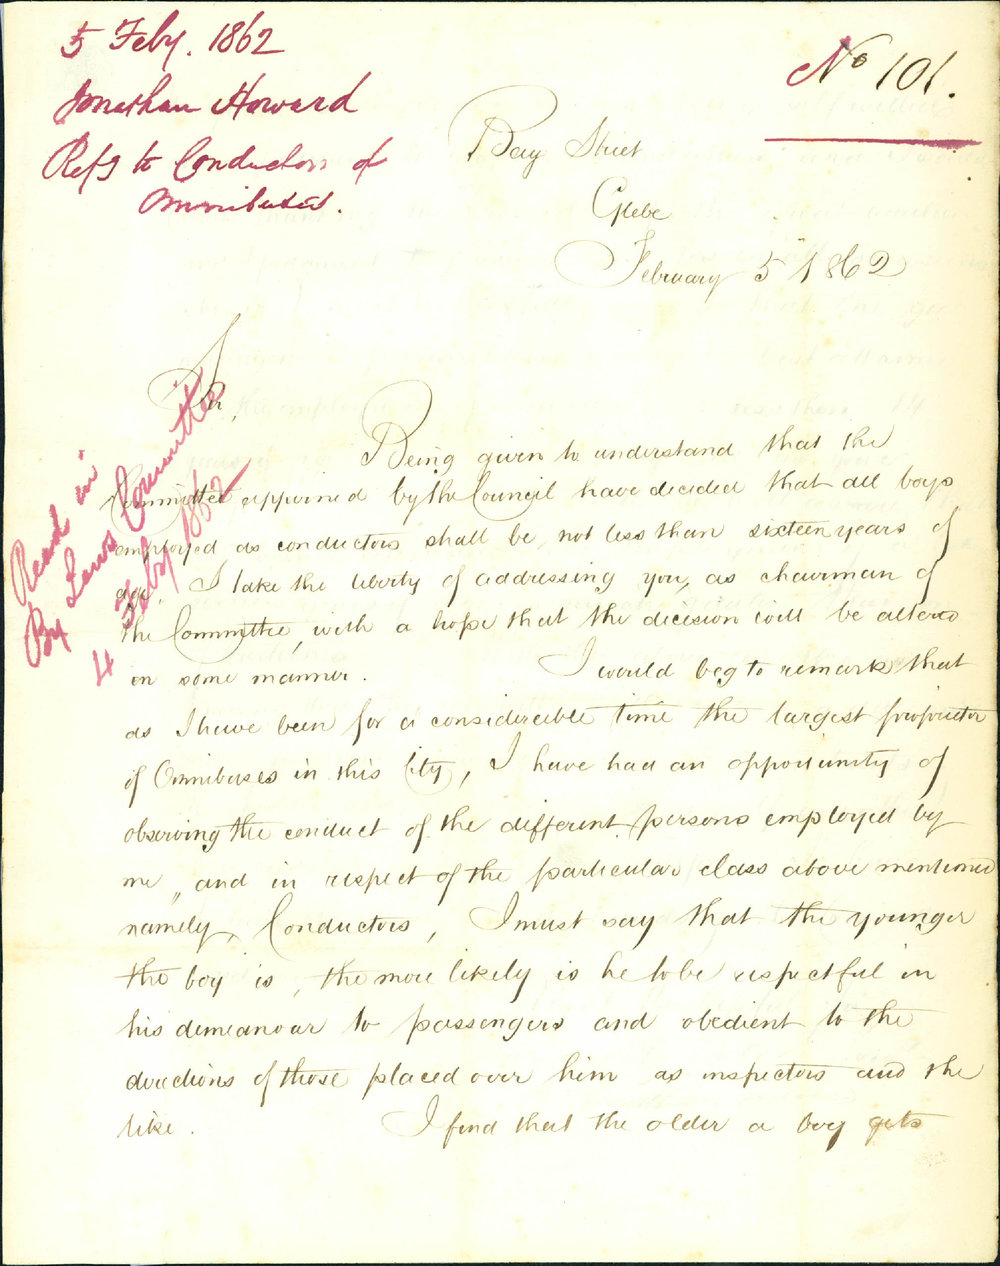 5 Feby. 1862
Jonathan Howard
Refg to Conductors of
Omnibuses.
No 101.
Bay Street
Glebe
February 5 1862
Read in
By Laws Committee
4 Feby 1862
Sir,
Being given to understand that the
Committee appoined by the Council have decided that all boys
employed as conductors shall be not less than sixteen years of
age. I take the liberty of addressing you, as chairman of
the Committee, with a hope that the decision will be altered
in some manner. I would beg to remark that
as I have been for a considerable time the largest proprietor
of Omnibuses in this City, I have had an opportunity of
observing the conduct of the different persons employed by
me, and in respect of the particular class above mentioned
namely, Conductors, I must say that the younger
the boy is, the more likely is he to be respectful in
his demeanour to passengers and obedient to the
directions of those placed over him as inspectors and the
like. I find that the older a boy gets